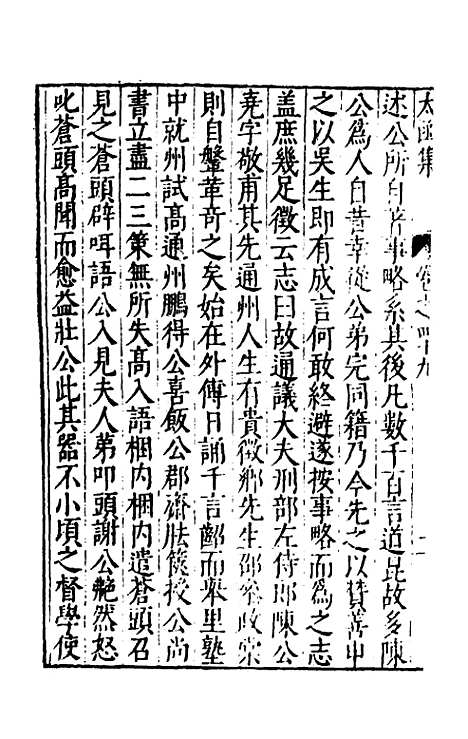 太函集 卷之四十九
述公所自著事略系其後凡數千百言道昆故多陳
公為人自昔幸從公弟完同籍乃今先之以賛善申
之以吳生即有成言何敢終避遂按事略而為之志
盖庶幾足徵云志曰故通議大夫刑部左侍郎陳公
堯字敬甫其先通州人生有貴徵鄉先生邵參政棠
則自鞶革奇之矣始在外傅日誦千言齠而舉里塾
中就州試高通州鵬得公喜飯公郡齋胠篋授公尚
書立盡二三策無所失高入語梱内梱内遣蒼頭召
見之蒼頭辟咡語公入見夫人第叩頭謝公艴然怒
叱蒼頭高聞而愈益壯公此其器不小頃之督學使